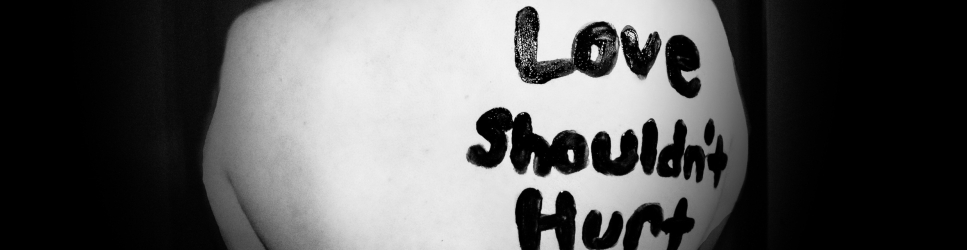 Love
Shouldn't
Hurt